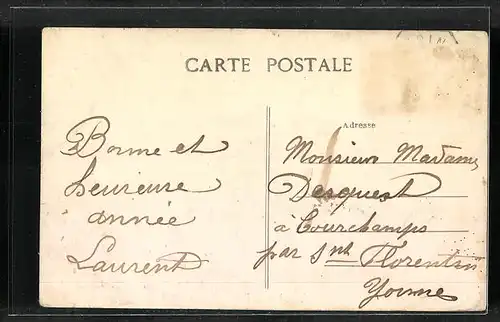 CARTE POSTALE
Bonne et
heureuse
année
Laurent
Adresse
Monsieur Madame
Desquest
à Courchamps
par Snt Florentin
Yonne